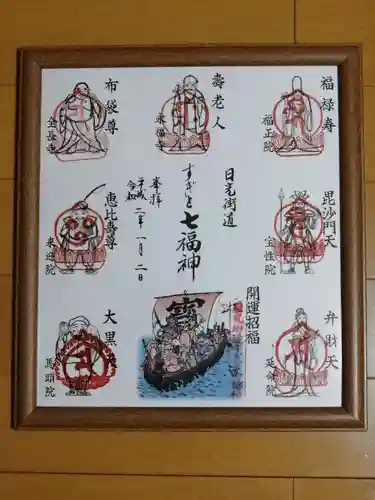 福禄寿
福正院
壽老人
永福寺
布袋尊
全長寺
日光街道
すぎと七福神
奉拝
平成
令和
二年一月二日
毘沙門天
宝性院
恵比壽尊
来迎院
開運招福
弁財天
延命院
大黒天
馬頭院
寳